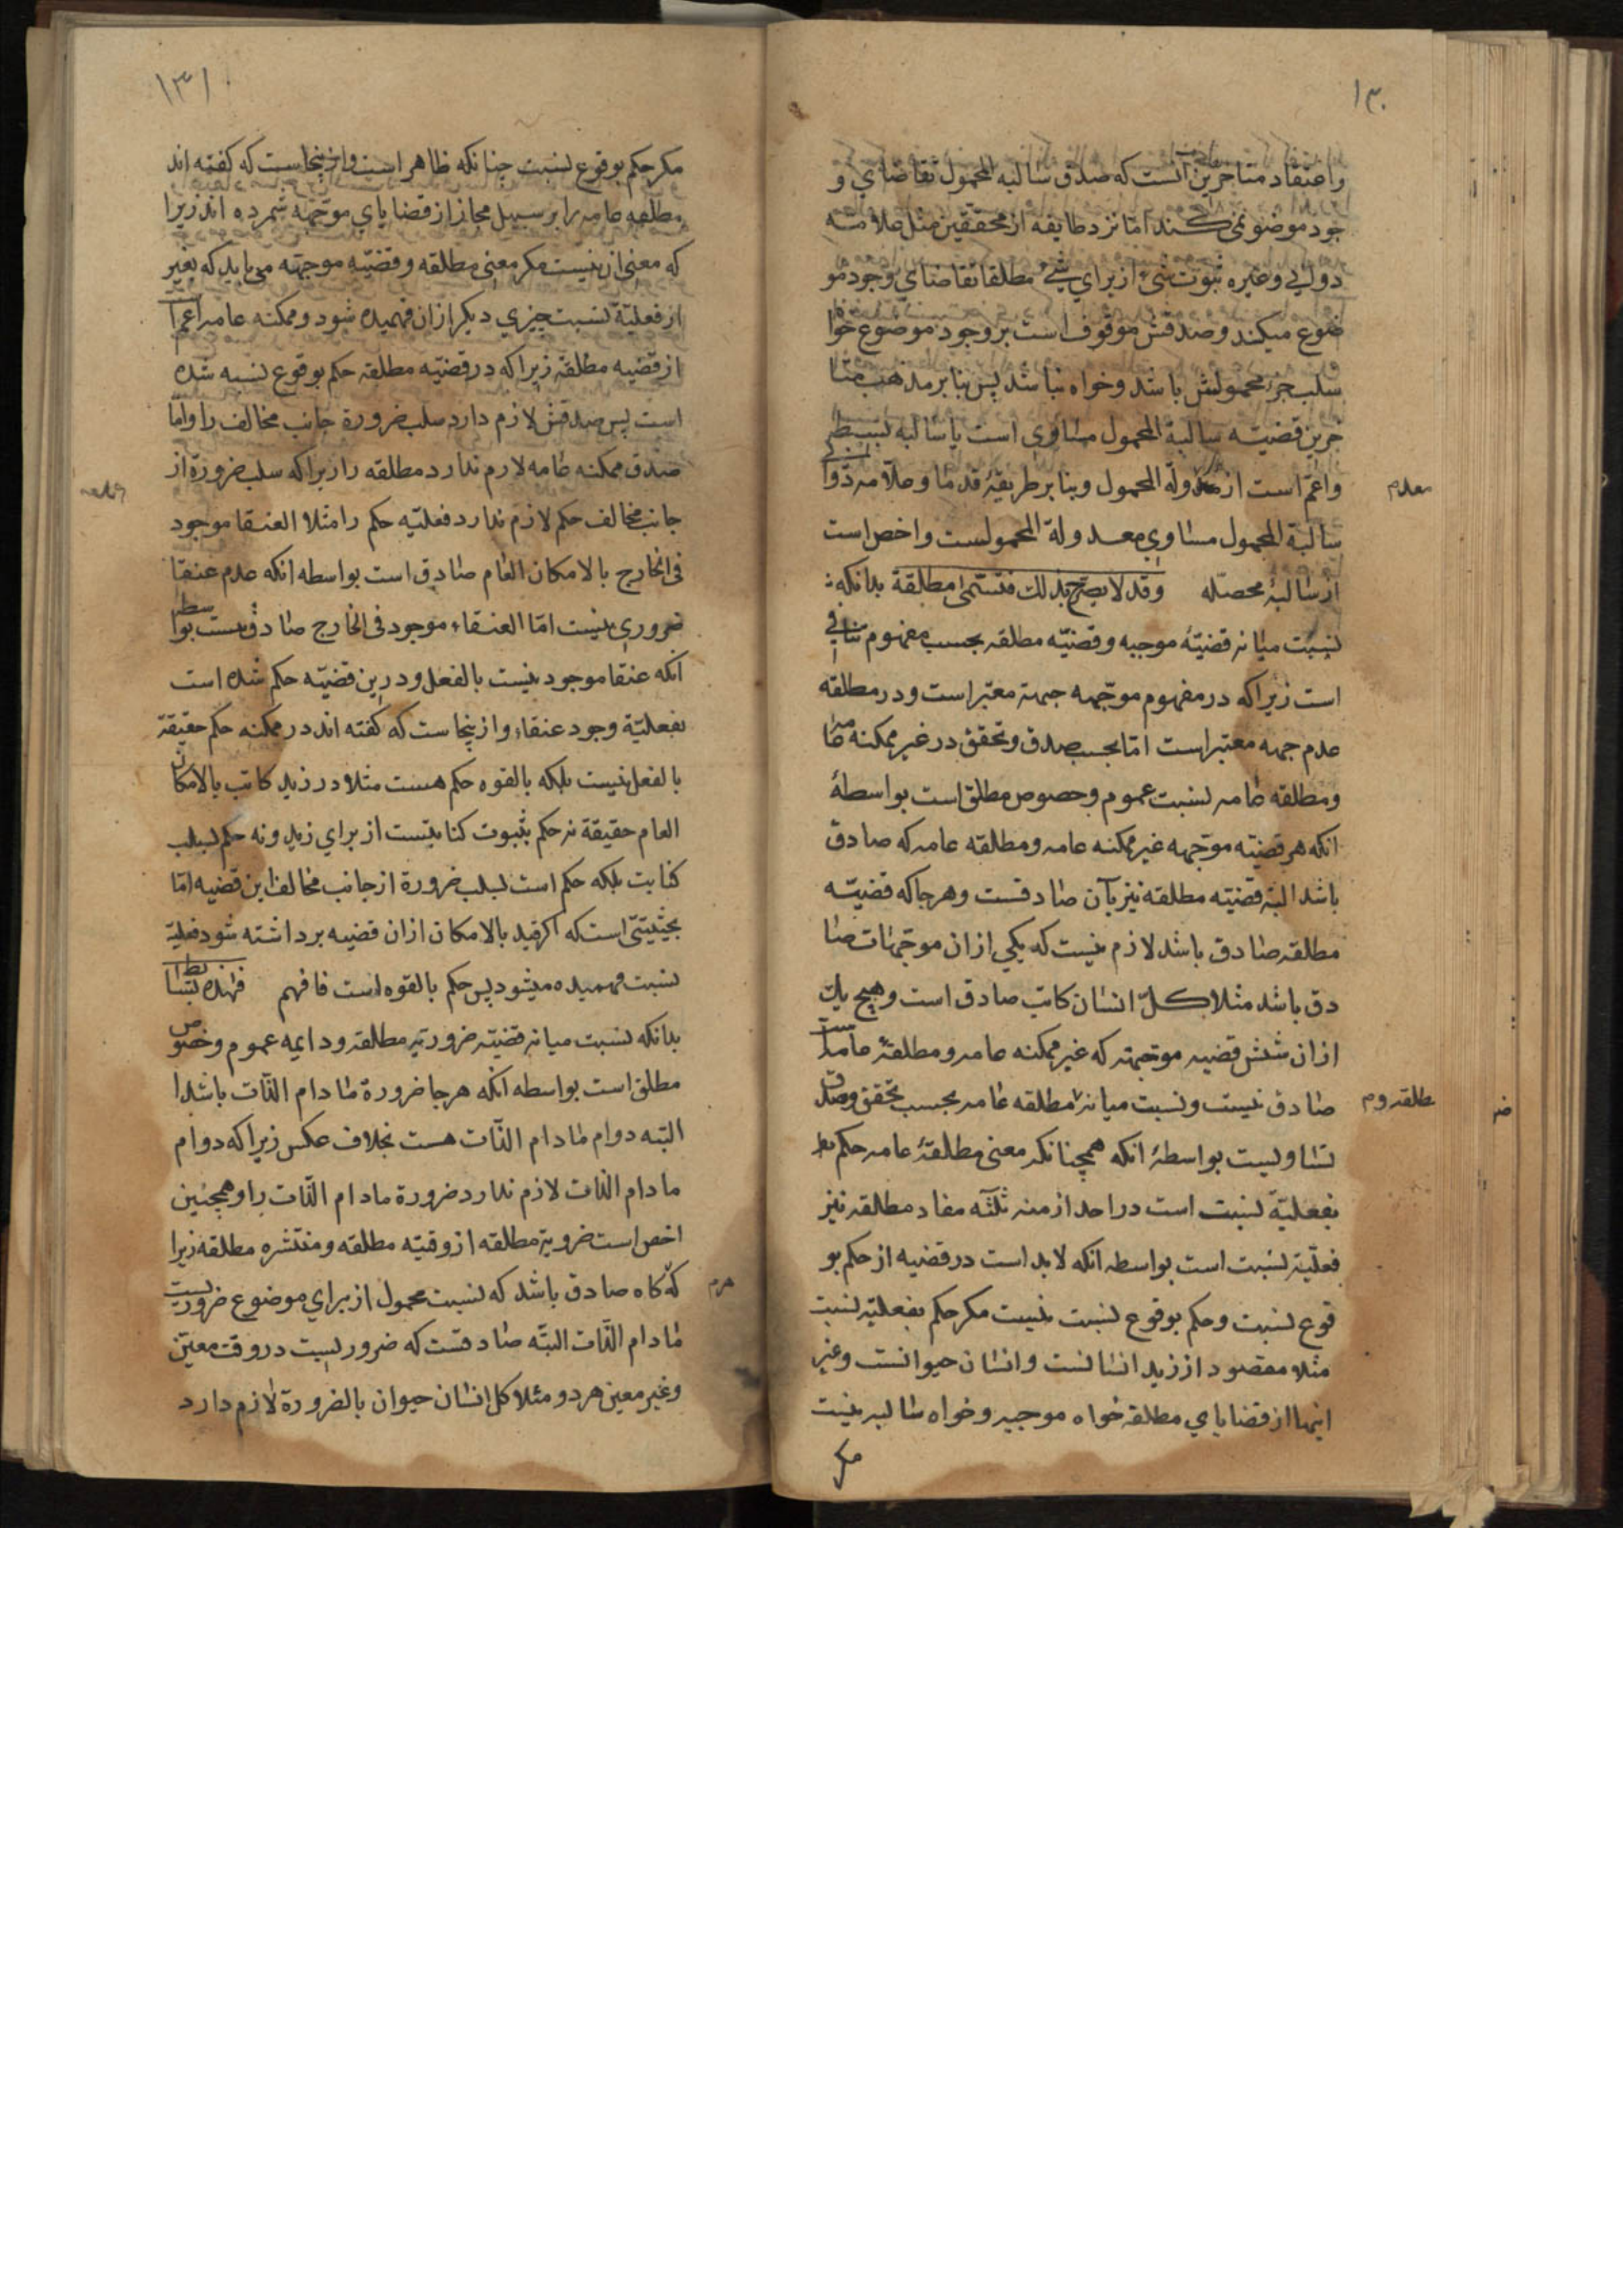 ۱۳۰
واعتقاد متاخرین آنست که صدق سالبه المحمول تقاضای و
جود موضو نمی کند اما نزد طایفه از محققین مثل علامه
دوانی وغیره ثبوت شیء از برای شیء مطلقا تقاضای وجود مو
ضوع میکند وصدقش موقوف است بر وجود موضوع خوا
سلب جزء محمولش باشد وخواه نباشد پس بنابر مذهب متا
خرین قضیّه سالبة المحمول مساوی است با سالبه بسیط
واعمّ است از معدولة المحمول وبنا بر طریقهٔ قدما وعلّامه دوا
معدم
سالبة المحمول مساوی معدولة المحمولست واخص است
از سالبهٔ محصّله وقد لا یصرّح بذلک فتسمّی مطلقة بدانکه
نسبت میانه قضیّهٔ موجبه وقضیّه مطلقه بحسب مفهوم تنافی
است زیراکه در مفهوم موجّهه جهة معتبر است ودر مطلقه
عدم جهه معتبر است امّا بحسب صدق وتحقق در غیر ممکنه عامه
ومطلقه عامه نسبت عموم وخصوص مطلق است بواسطهٔ
انکه هر قضیّه موجّهه غیر ممکنه عامه ومطلقه عامه که صادق
باشد البته قضیّه مطلقه نیز بآن صادقست وهرجا که قضیّه
مطلقه صادق باشد لازم نیست که یکی از ان موجّهات صا
دق باشد مثلا کلّ انسان کاتب صادق است وهیچ یک
از ان شش قضیه موجّهه که غیر ممکنه عامه ومطلقهٔ عامه است
صادق نیست ونسبت میانه مطلقه عامه بحسب تحقق وصدق
مطلقه وم
تساویست بواسطهٔ انکه همچنانکه معنی مطلقهٔ عامه حکم
بفعلیّة نسبت است در احد ازمنه ثلثه مفاد مطلقه نیز
فعلیّة نسبت است بواسطه انکه لابد است در قضیه از حکم بو
قوع نسبت وحکم بوقوع نسبت نیست مکر حکم بفعلیّه نسبت
مثلا مقصود از زید انسانست وانسان حیوانست وغیر
اینها از قضایای مطلقه خواه موجبه وخواه سالبه نیست
مکر
۱۳۱
مکر حکم بوقوع نسبت چنانکه ظاهر است واز ینجاست که کفته اند
مطلقه عامه را بر سبیل مجاز از قضایای موجّهه شمرده اند زیرا
که معنی ان نیست مکر معنی مطلقه وقضیّه موجّهه می باید که بغیر
از فعلیّة نسبت چیزی دیکر از ان فهمیده شود وممکنه عامه اعم ا
از قضیه مطلقه زیراکه در قضیّه مطلقه حکم بوقوع نسبه شده
است پس صدقش لازم دارد سلب ضرورة جانب مخالف را وامّا
صدق ممکنه عامه لازم ندارد مطلقه را زیراکه سلب ضرورة از
جانب مخالف حکم لازم ندارد فعلیّه حکم را مثلا العنقا موجود
فی الخارج بالامکان العام صادق است بواسطه انکه عدم عنقا
ضروری نیست امّا العنقاء موجود فی الخارج صادق نیست بواسطه
انکه عنقا موجود نیست بالفعل ودرین قضیّه حکم شده است
بفعلیّة وجود عنقاء واز ینجاست که کفته اند در ممکنه حکم حقیقة
بالفعل نیست بلکه بالقوه حکم هست مثلا در زید کاتب بالامکان
العام حقیقة نه حکم بثبوت کتابتست از برای زید ونه حکم بسلب
کتابت بلکه حکم است بسلب ضرورة از جانب مخالف این قضیه امّا
بحیثیتی است که اکر قید بالامکان از ان قضیه برداشته شود فعلیّة
نسبت فهمیده میشود پس حکم بالقوه است فافهم فهذه بسائط
بدانکه نسبت میانه قضیّه ضروریّه مطلقه ودایمه عموم وخصوص
مطلق است بواسطه انکه هرجا ضرورة مادام الذّات باشد ا
البتّه دوام مادام الذّات هست بخلاف عکس زیراکه دوام
مادام الذّات لازم ندارد ضرورة مادام الذّات را وهمچنین
اخص است ضروریّة مطلقه از وقتیّه مطلقه ومنتشره مطلقه زیرا
که کاه صادق باشد که نسبت محمول از برای موضوع ضروریست
مادام الذّات البتّه صادقست که ضروریست در وقت معیّن
وغیر معین هر دو مثلا کل انسان حیوان بالضرورة لازم دارد